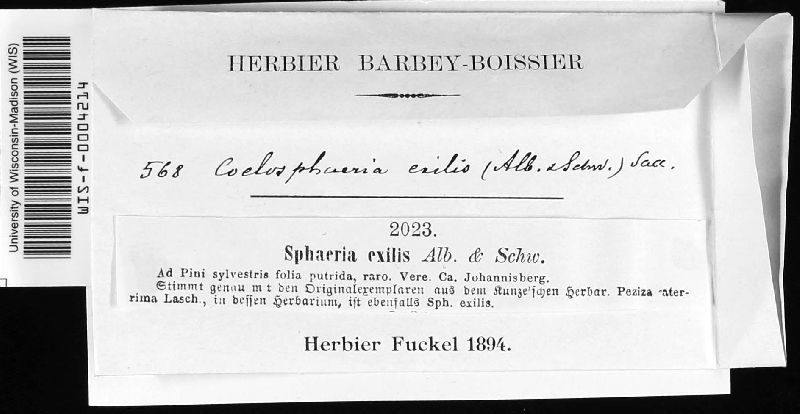 University of Wisconsin-Madison (WIS)
WIS-f-0004214
HERBIER BARBEY-BOISSIER
568 Coelosphaeria exilis (Alb. & Schw.) Sacc.
2023.
Sphaeria exilis Alb. & Schw.
Ad Pini sylvestris folia putrida, raro. Vere. Ca. Johannisberg.
Stimmt genau m t den Originalexemplaren aus dem Kunze'schen Herbar. Peziza ater-
rima Lasch., in dessen Herbarium, ist ebenfalls Sph. exilis.
Herbier Fuckel 1894.